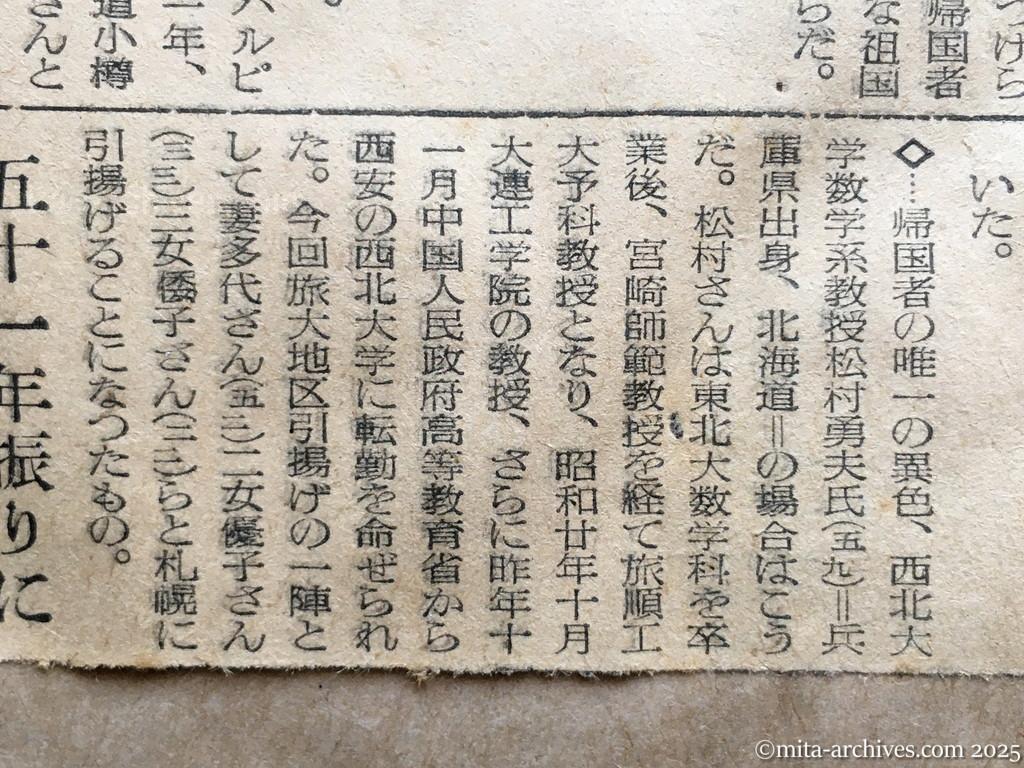 つけら
帰国者
な祖国
らだ。
ハルピ
一年、
道小樽
さんと
いた。
◇…帰国者の唯一の異色、西北大
学数学系教授松村勇夫氏(五九)＝兵
庫県出身、北海道＝の場合はこう
だ。松村さんは東北大数学科を卒
業後、宮崎師範教授を経て旅順工
大予科教授となり、昭和廿年十月
大連工学院の教授、さらに昨年十
一月中国人民政府高等教育省から
西安の西北大学に転勤を命ぜられ
た。今回旅大地区引揚げの一陣と
して妻多代さん(五二)二女優子さん
(三三)三女倭子さん(三二)らと札幌に
引揚げることになつたもの。
五十一年振りに
©mita-archives.com 2025